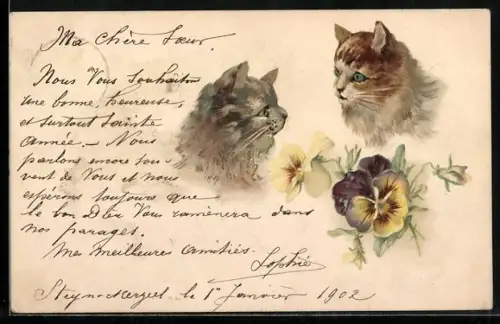 Ma chère Sœur.
Nous Vous souhaitons
une bonne, heureuse,
et surtout sainte
année. — Nous
parlons encore sou
vent de Vous et nous
espérons toujours que
le bon Dieu Vous ramènera dans
nos parages.
Mes meilleures amitiés.
Sophie
le 1er Janvier 1902